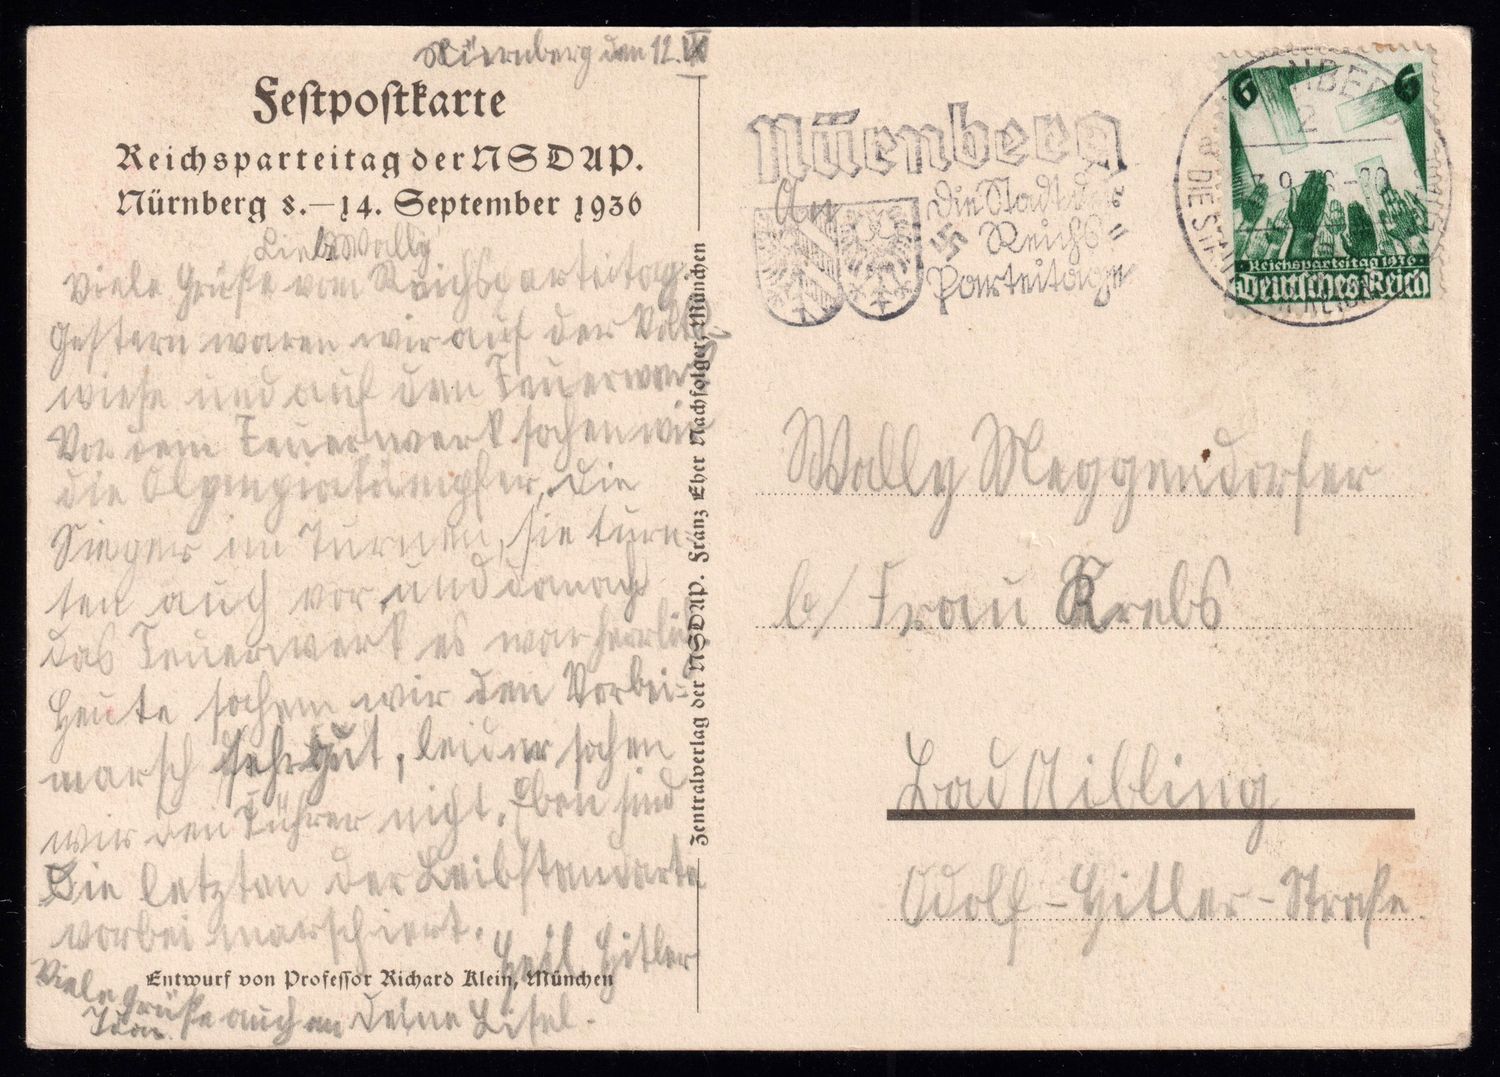 Nürnberg den 12. IX
Festpostkarte
Reichsparteitag der NSDAP.
Nürnberg 8.—14. September 1936
Liebe Wally
Viele Grüße vom Reichsparteitag.
Gestern waren wir auf der Volks-
wiese und auf dem Feuerwerk
Vor dem Feuerwerk sahen wir
die Olympiakämpfer, die
Sieger im Turnen, sie turn-
ten auch vor und danach
das Feuerwerk es war herrlich.
Heute sahen wir den Vorbei-
marsch sehr gut, leider sahen
wir den Führer nicht. Eben sind
Die letzten der Leibstandarte
vorbei marschiert.
Heil Hitler
Entwurf von Professor Richard Klein, München
Viele Grüße auch an
Deine Lisel.
Zentralverlag der NSDAP. Franz Eher Nachfolger, München
Nürnberg
Die Stadt der
Reichs-
Parteitage
An
NBER
2
6 6
Reichsparteitag 1936
Deutsches Reich
Wally Meggendorfer
b/ Frau Krebs
Bad Aibling
Adolf-Hitler-Straße.